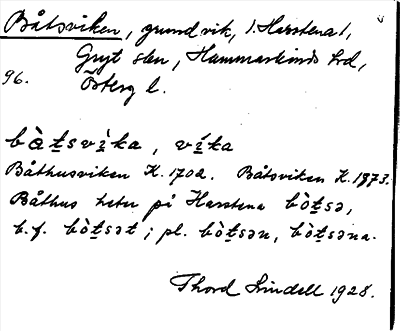 Båtsviken, grund vik, i Harstena 1,
Gryt skn, Hammarkinds hrd,
96. Österg l.
bòtsvíka, víka
Båthusviken K. 1702. Båtsviken K. 1873.
Båthus heter på Harstena bòtsə,
b.f. bòtsət; pl. bòtsən, bòtsəna.
Thord Lindell 1928.